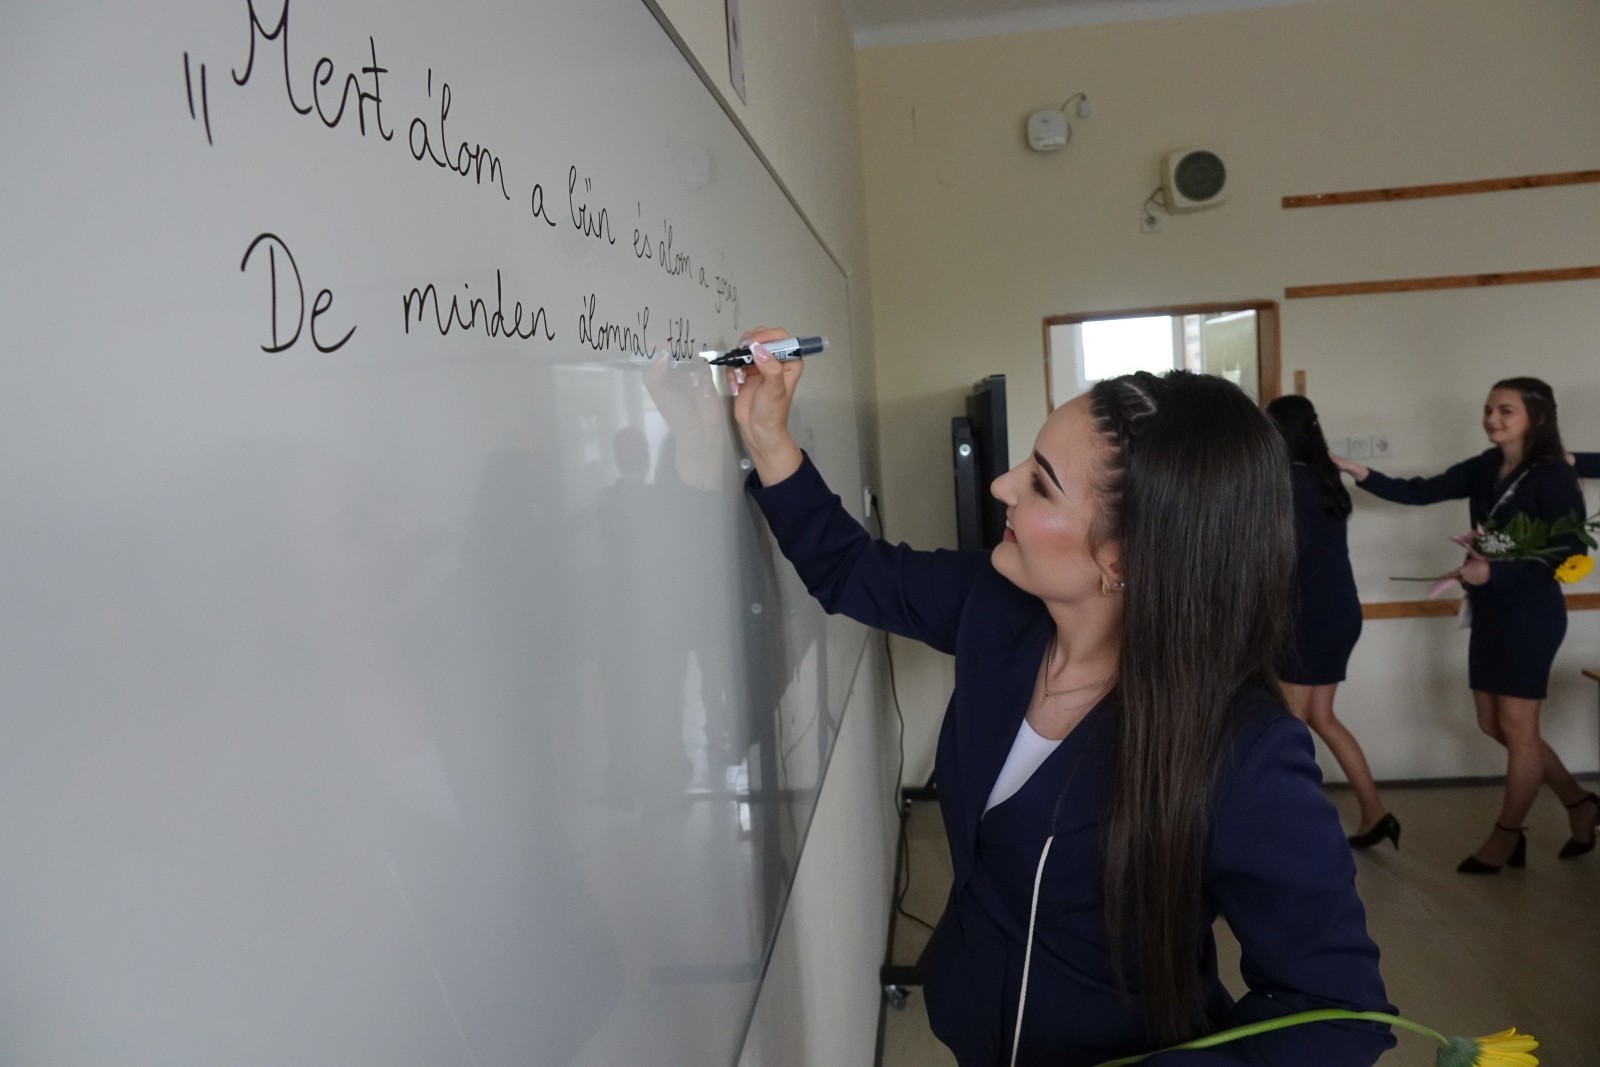 „Mert álom a bűn és álom a jóság
De minden álomnál több a